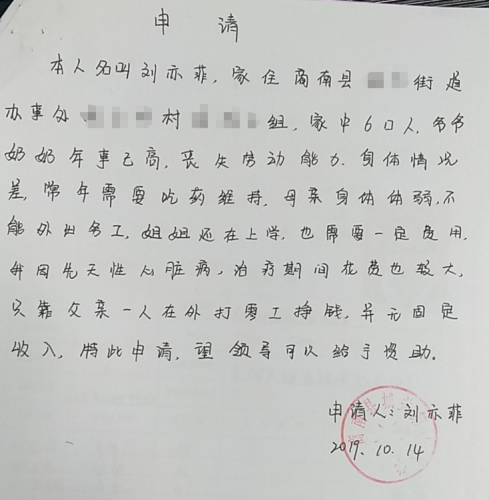 申 请
本人名叫刘亦菲,家住商南县 街道
办事处 村 组,家中6口人,爷爷
奶奶年事已高,丧失劳动能力.身体情况
差,常年需要吃药维持,母亲身体体弱,不
能外出务工,姐姐还在上学,也需要一定费用,
我因先天性心脏病,治疗期间花费也较大,
只靠父亲一人在外打零工挣钱,并无固定
收入,特此申请,望领导可以给予资助。
申请人:刘亦菲
2019.10.14